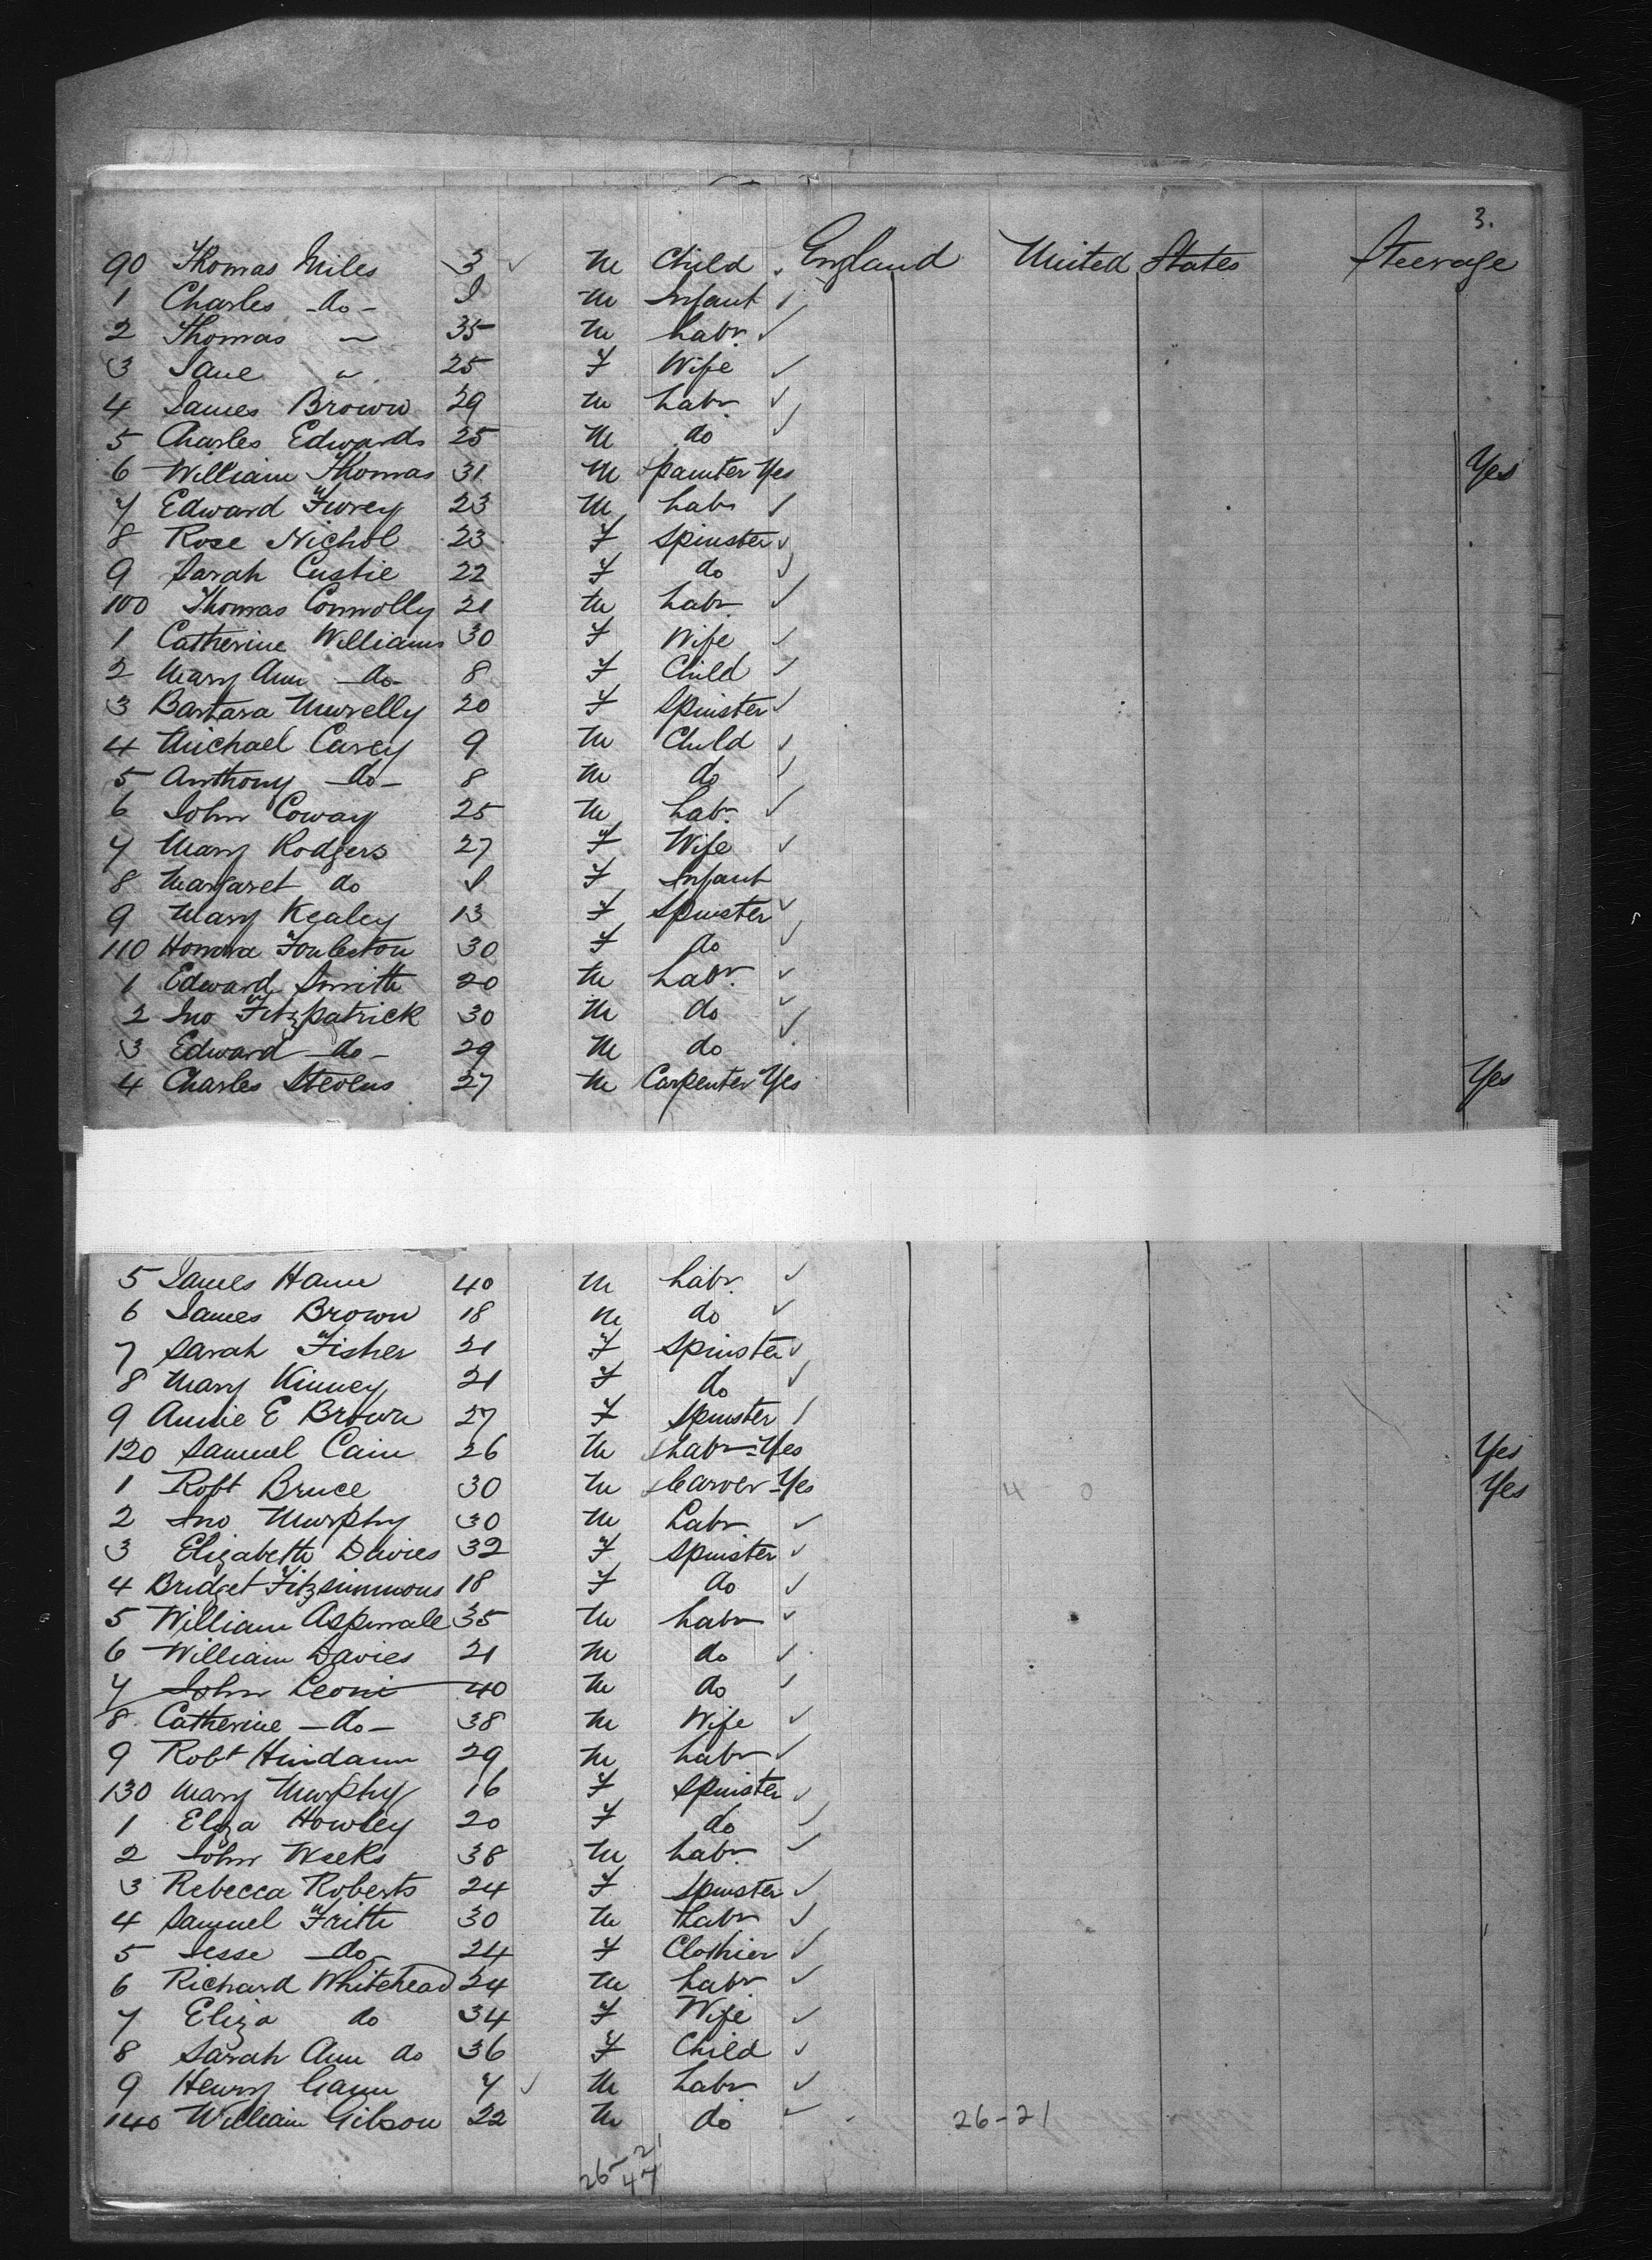 3.
90 Thomas Miles 3 M Child England United States Steerage
1 Charles -do- I M Infant
2 Thomas " 35 M Labr
3 Jane " 25 F Wife
4 James Brown 29 M Labr
5 Charles Edwards 25 M do
6 William Thomas 31 M Painter Yes Yes
7 Edward Furey 23 M Labr
8 Rose Nichol 23 F Spinster
9 Sarah 22 F do
100 Thomas Connolly 21 M Labr
1 Catherine Williams 30 F Wife
2 Mary Ann -do- 8 F Child
3 Barbara Murelly 20 F Spinster
4 Michael Carey 9 M Child
5 Anthony -do- 8 M do
6 John Coway 25 M Labr
7 Mary Rodgers 27 F Wife
8 Margaret do I F Infant
9 Mary Kealey 13 F Spinster
110 Honora 30 F do
1 Edward Smith 20 M Labr
2 Jno Fitzpatrick 30 M do
3 Edward -do- 29 M do
4 Charles Stevens 27 M Carpenter Yes Yes
5 James Hann 40 M Labr
6 James Brown 18 M do
7 Sarah Fisher 21 F Spinster
8 Mary Kinney 21 F do
9 Annie E Brown 27 F Spinster
120 Samuel Cain 26 M Labr Yes Yes
1 Robt Bruce 30 M Carver Yes 4 0 Yes
2 Jno Murphy 30 M Labr
3 Elizabeth Davies 32 F Spinster
4 Bridget Fitzsimmons 18 F do
5 William Aspinall 35 M Labr
6 William Davies 21 M do
7 John Leoni 40 M do
8 Catherine -do- 38 M Wife
9 Robt Hindann 29 M Labr
130 Mary Murphy 16 F Spinster
1 Eliza Howley 20 F do
2 John Weeks 38 M Labr
3 Rebecca Roberts 24 F Spinster
4 Samuel Frith 30 M Labr
5 Jesse -do- 24 F Clothier
6 Richard Whitehead 24 M Labr
7 Eliza do 34 F Wife
8 Sarah Ann do 36 F Child
9 Henry Gann 7 M Labr
140 William Gibson 22 M do 26-21
26-21
47